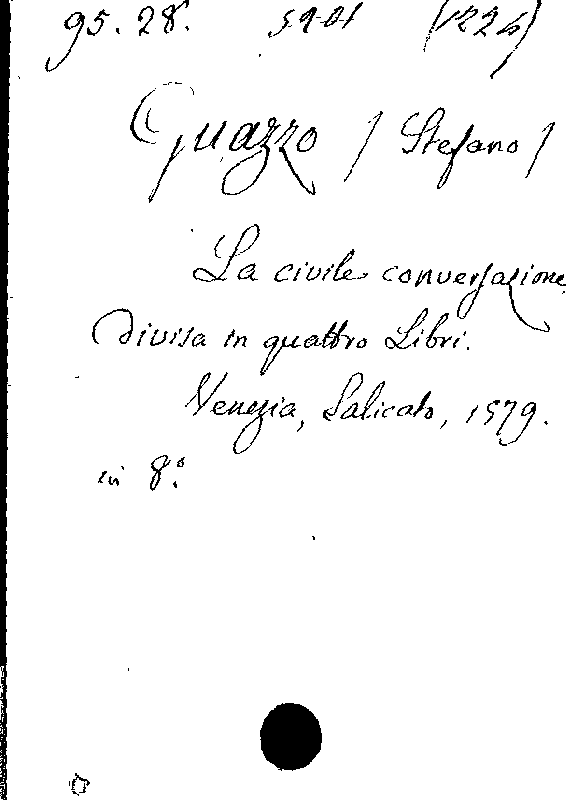 95. 28. 59-01 (1224)
Guazzo / Stefano /
La civile conversazione
divisa in quattro Libri.
Venezia, Salicato, 1579.
in 8º.